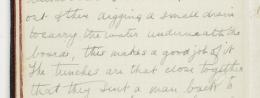 out of this digging a small drain
to carry the water underneath the
boards, this makes a good job of it
The trenches are that close together
that they sent a man back to